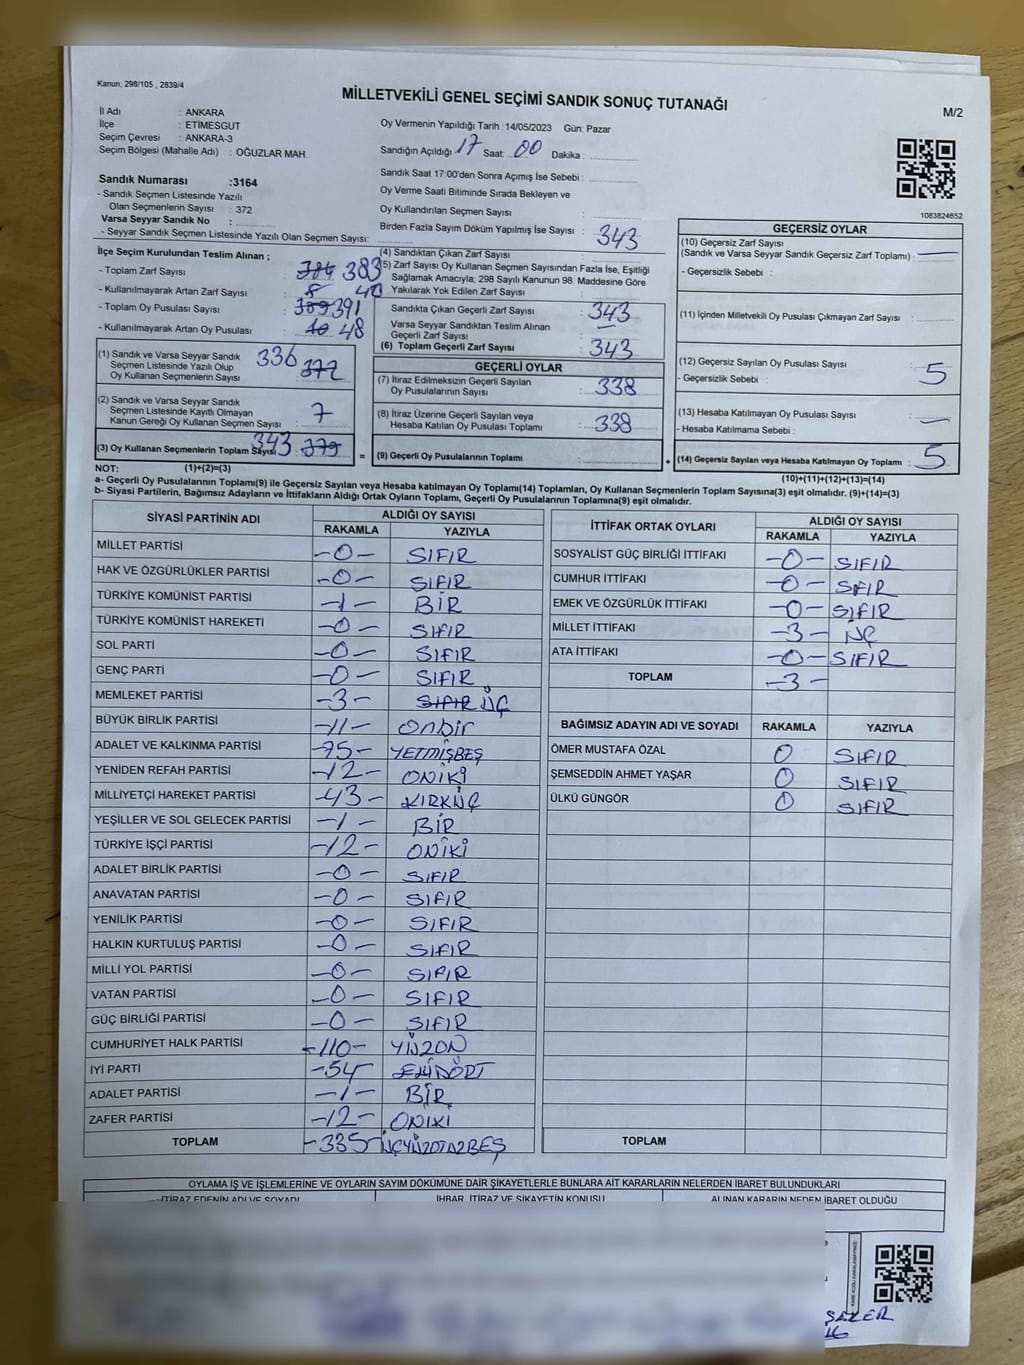 Kanun, 298/105 , 2839/4
MİLLETVEKİLİ GENEL SEÇİMİ SANDIK SONUÇ TUTANAĞI
M/2
İl Adı : ANKARA
İlçe : ETİMESGUT
Seçim Çevresi : ANKARA-3
Seçim Bölgesi (Mahalle Adı) : OĞUZLAR MAH.
Oy Vermenin Yapıldığı Tarih :14/05/2023 Gün: Pazar
Sandığın Açıldığı 17 Saat: 00 Dakika :
Sandık Saat 17:00'den Sonra Açımış İse Sebebi :
Oy Verme Saati Bitiminde Sırada Bekleyen ve
Oy Kullandırılan Seçmen Sayısı :
Birden Fazla Sayım Döküm Yapılmış İse Sayısı : 343
1083824652
Sandık Numarası :3164
- Sandık Seçmen Listesinde Yazılı
Olan Seçmenlerin Sayısı : 372
Varsa Seyyar Sandık No :
- Seyyar Sandık Seçmen Listesinde Yazılı Olan Seçmen Sayısı:
İlçe Seçim Kurulundan Teslim Alınan ;
- Toplam Zarf Sayısı : 384 383
- Kullanılmayarak Artan Zarf Sayısı : 8 40
- Toplam Oy Pusulası Sayısı : 389 391
- Kullanılmayarak Artan Oy Pusulası : 10 48
(4) Sandıktan Çıkan Zarf Sayısı :
(5) Zarf Sayısı Oy Kullanan Seçmen Sayısından Fazla İse, Eşitliği
Sağlamak Amacıyla, 298 Sayılı Kanunun 98. Maddesine Göre
Yakılarak Yok Edilen Zarf Sayısı :
Sandıkta Çıkan Geçerli Zarf Sayısı : 343
Varsa Seyyar Sandıktan Teslim Alınan
Geçerli Zarf Sayısı : —
(6) Toplam Geçerli Zarf Sayısı : 343
(1) Sandık ve Varsa Seyyar Sandık
Seçmen Listesinde Yazılı Olup
Oy Kullanan Seçmenlerin Sayısı : 336 372
(2) Sandık ve Varsa Seyyar Sandık
Seçmen Listesinde Kayıtlı Olmayan
Kanun Gereği Oy Kullanan Seçmen Sayısı : 7
(3) Oy Kullanan Seçmenlerin Toplam Sayısı : 343 379
GEÇERLİ OYLAR
(7) İtiraz Edilmeksizin Geçerli Sayılan
Oy Pusulalarının Sayısı : 338
(8) İtiraz Üzerine Geçerli Sayılan veya
Hesaba Katılan Oy Pusulası Toplamı : 338
= (9) Geçerli Oy Pusulalarının Toplamı :
GEÇERSİZ OYLAR
(10) Geçersiz Zarf Sayısı
(Sandık ve Varsa Seyyar Sandık Geçersiz Zarf Toplamı) : —
- Geçersizlik Sebebi :
(11) İçinden Milletvekili Oy Pusulası Çıkmayan Zarf Sayısı :
(12) Geçersiz Sayılan Oy Pusulası Sayısı : 5
- Geçersizlik Sebebi :
(13) Hesaba Katılmayan Oy Pusulası Sayısı : —
- Hesaba Katılmama Sebebi :
+ (14) Geçersiz Sayılan veya Hesaba Katılmayan Oy Toplamı : 5
NOT: (1)+(2)=(3)
(10)+(11)+(12)+(13)=(14)
a- Geçerli Oy Pusulalarının Toplamı(9) ile Geçersiz Sayılan veya Hesaba katılmayan Oy Toplamı(14) Toplamları, Oy Kullanan Seçmenlerin Toplam Sayısına(3) eşit olmalıdır. (9)+(14)=(3)
b- Siyasi Partilerin, Bağımsız Adayların ve İttifakların Aldığı Ortak Oyların Toplamı, Geçerli Oy Pusulalarının Toplamına(9) eşit olmalıdır.
SİYASİ PARTİNİN ADI ALDIĞI OY SAYISI
RAKAMLA YAZIYLA
MİLLET PARTİSİ -0- SIFIR
HAK VE ÖZGÜRLÜKLER PARTİSİ -0- SIFIR
TÜRKİYE KOMÜNİST PARTİSİ -1- BİR
TÜRKİYE KOMÜNİST HAREKETİ -0- SIFIR
SOL PARTİ -0- SIFIR
GENÇ PARTİ -0- SIFIR
MEMLEKET PARTİSİ -3- SIFIR ÜÇ
BÜYÜK BİRLİK PARTİSİ -11- ONBİR
ADALET VE KALKINMA PARTİSİ -75- YETMİŞBEŞ
YENİDEN REFAH PARTİSİ -12- ONİKİ
MİLLİYETÇİ HAREKET PARTİSİ -43- KIRKÜÇ
YEŞİLLER VE SOL GELECEK PARTİSİ -1- BİR
TÜRKİYE İŞÇİ PARTİSİ -12- ONİKİ
ADALET BİRLİK PARTİSİ -0- SIFIR
ANAVATAN PARTİSİ -0- SIFIR
YENİLİK PARTİSİ -0- SIFIR
HALKIN KURTULUŞ PARTİSİ -0- SIFIR
MİLLİ YOL PARTİSİ -0- SIFIR
VATAN PARTİSİ -0- SIFIR
GÜÇ BİRLİĞİ PARTİSİ -0- SIFIR
CUMHURİYET HALK PARTİSİ -110- YÜZON
İYİ PARTİ -54- ELLİDÖRT
ADALET PARTİSİ -1- BİR
ZAFER PARTİSİ -12- ONİKİ
TOPLAM -335- ÜÇYÜZOTUZBEŞ
İTTİFAK ORTAK OYLARI ALDIĞI OY SAYISI
RAKAMLA YAZIYLA
SOSYALİST GÜÇ BİRLİĞİ İTTİFAKI -0- SIFIR
CUMHUR İTTİFAKI -0- SIFIR
EMEK VE ÖZGÜRLÜK İTTİFAKI -0- SIFIR
MİLLET İTTİFAKI -3- ÜÇ
ATA İTTİFAKI -0- SIFIR
TOPLAM -3-
BAĞIMSIZ ADAYIN ADI VE SOYADI RAKAMLA YAZIYLA
ÖMER MUSTAFA ÖZAL 0 SIFIR
ŞEMSEDDİN AHMET YAŞAR 0 SIFIR
ÜLKÜ GÜNGÖR 0 SIFIR
TOPLAM
OYLAMA İŞ VE İŞLEMLERİNE VE OYLARIN SAYIM DÖKÜMÜNE DAİR ŞİKAYETLERLE BUNLARA AİT KARARLARIN NELERDEN İBARET BULUNDUKLARI
İTİRAZ EDENİN ADI VE SOYADI İHBAR, İTİRAZ VE ŞİKAYETİN KONUSU ALINAN KARARIN NEDEN İBARET OLDUĞU